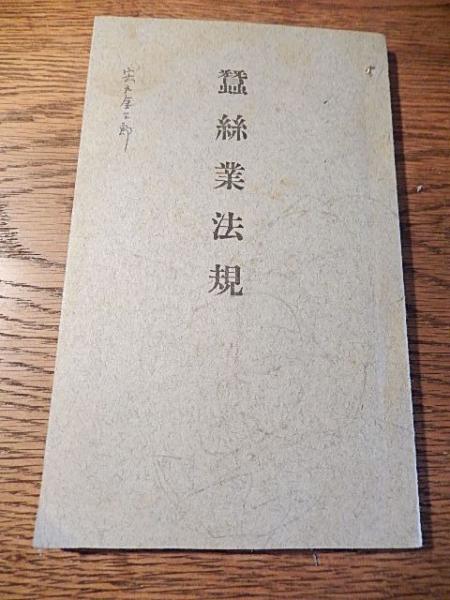 蠶絲業法規